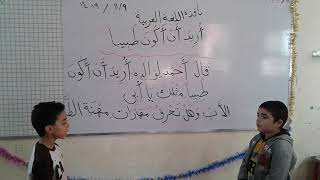 ١١/٩ / ٢٠١٩
نافذة اللغة العربية
أريد أن أكون طبيبا
قال أحمد لوالده أريد أن أكون
طبيبا مثلك يا أبي
الأب وهل تعرف ميزات مهنة